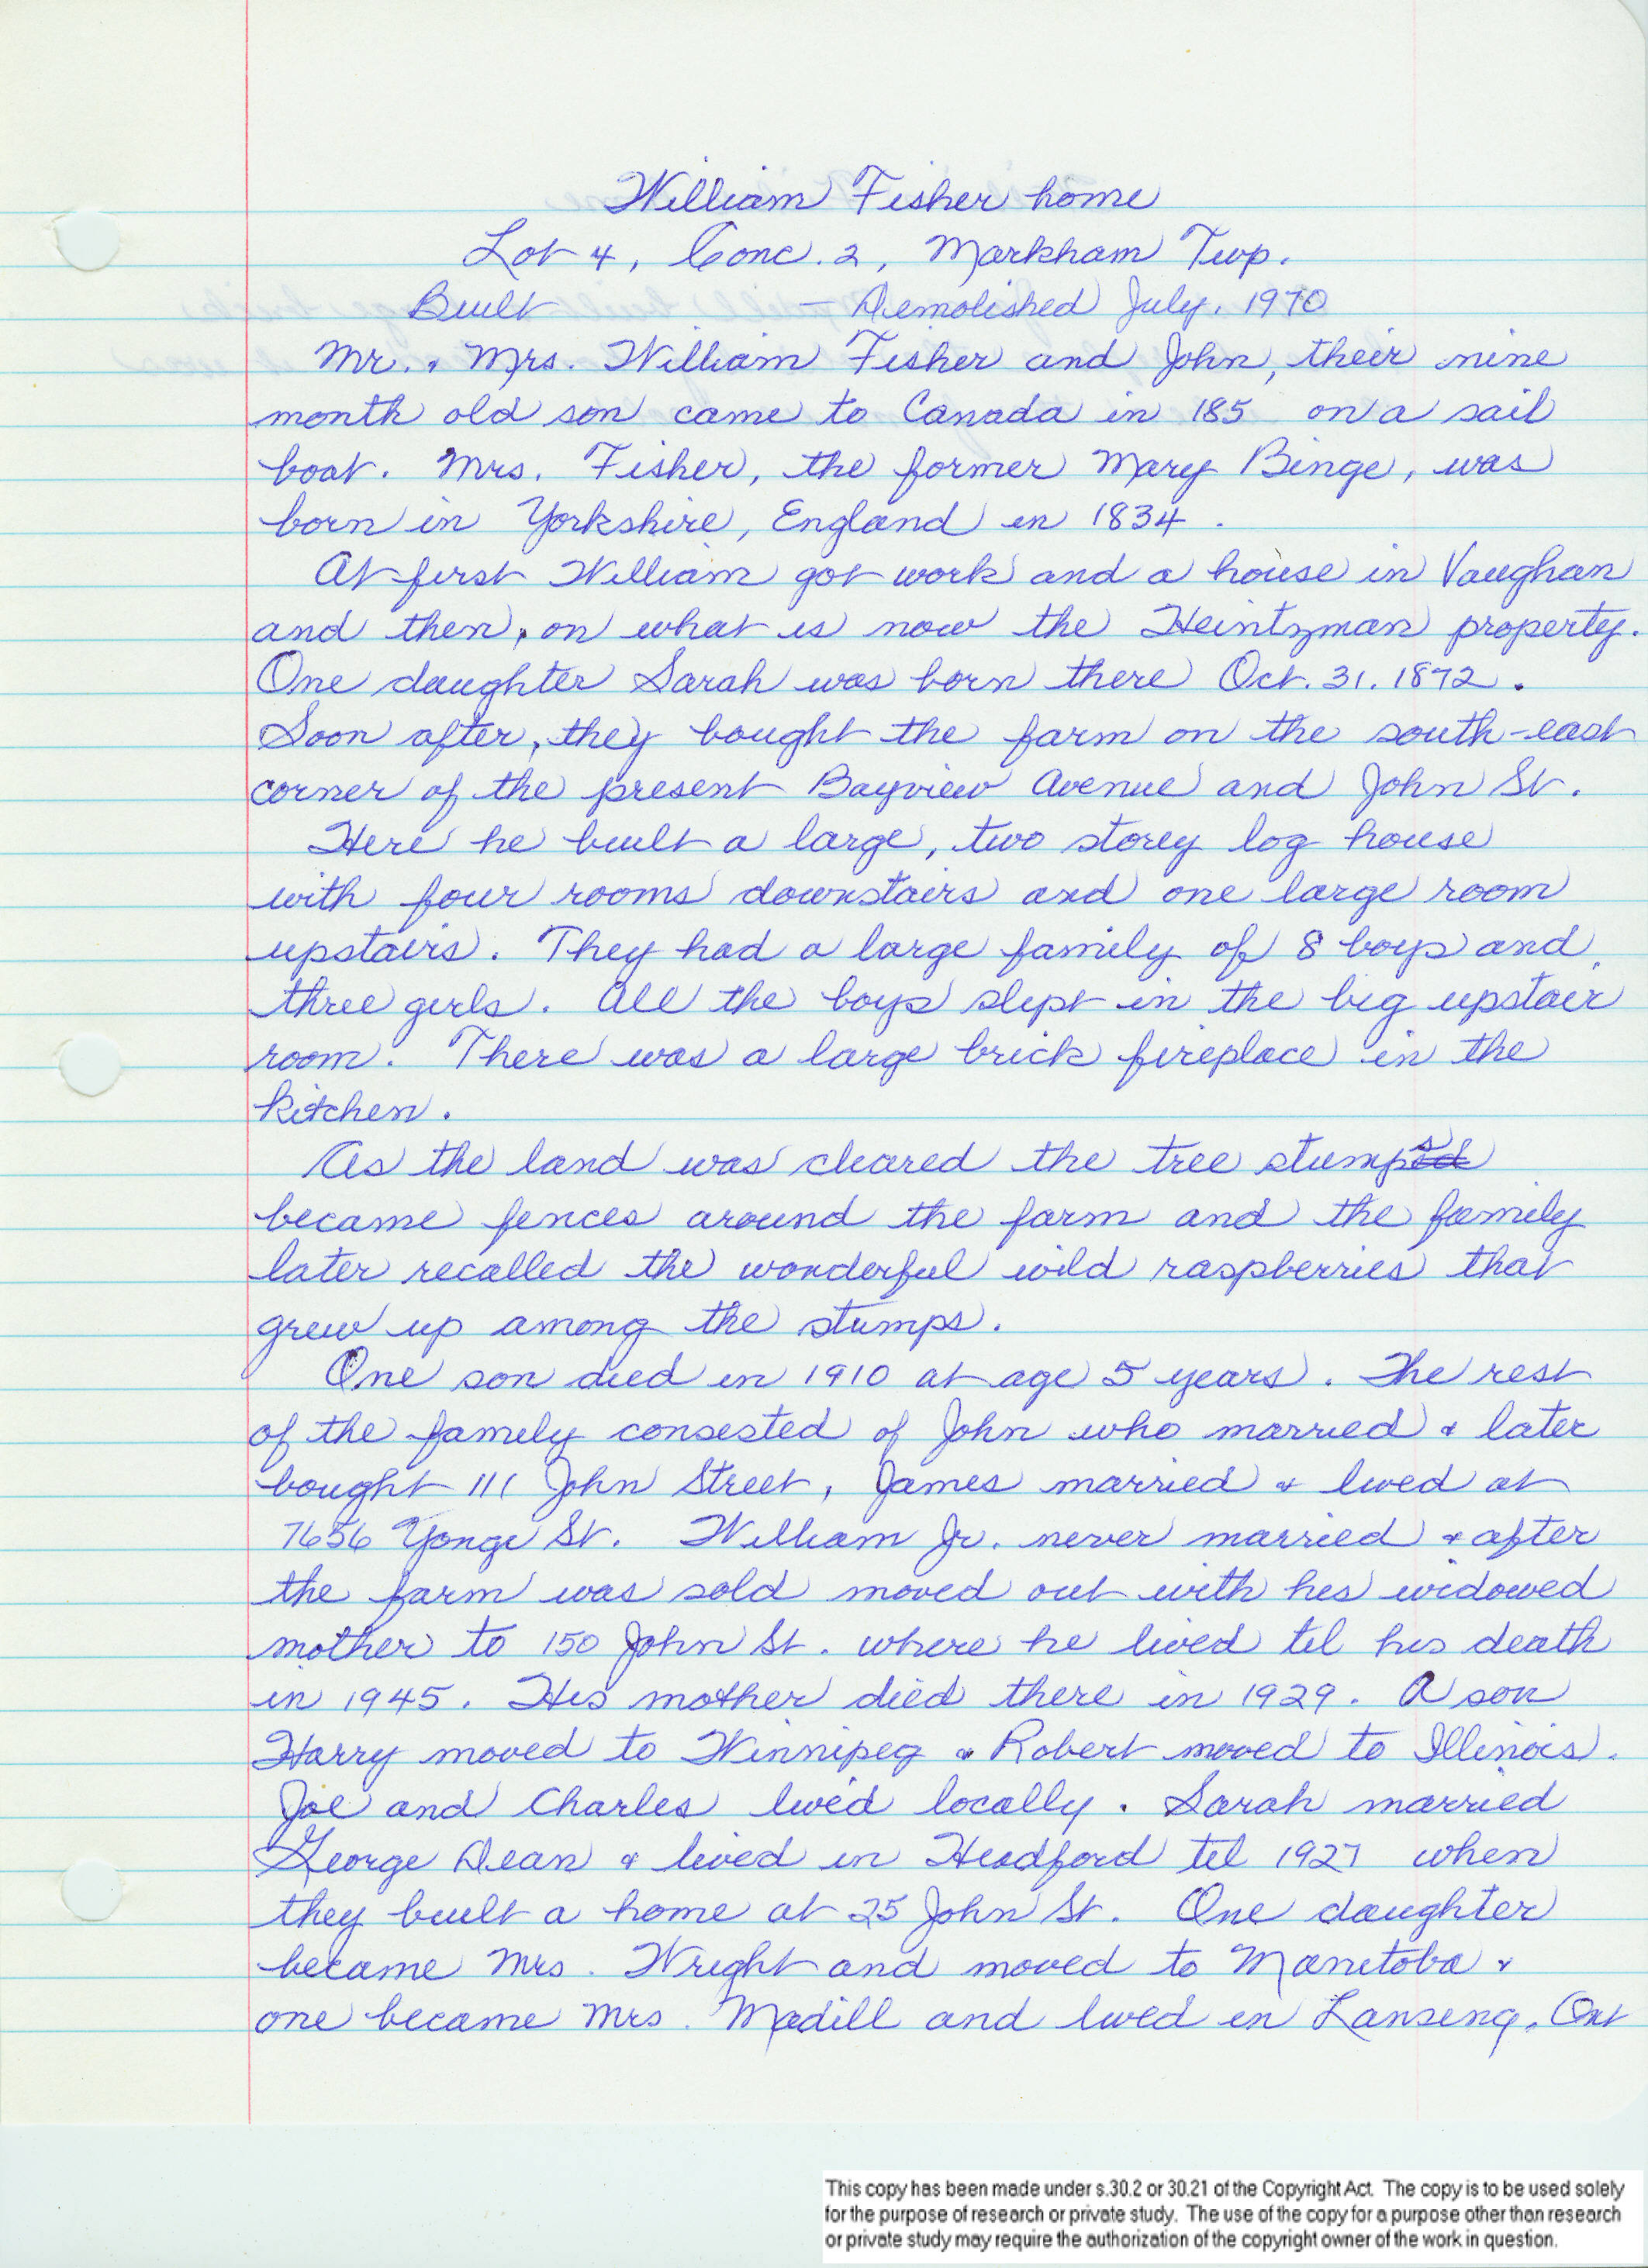 William Fisher home
Lot 4, Conc. 2, Markham Twp.
Built — Demolished July. 1970
Mr. & Mrs. William Fisher and John, their nine
month old son came to Canada in 185 on a sail
boat. Mrs. Fisher, the former Mary Binge, was
born in Yorkshire, England in 1834.
At first William got work and a house in Vaughan
and then, on what is now the Heintzman property.
One daughter Sarah was born there Oct. 31. 1872.
Soon after, they bought the farm on the south-east
corner of the present Bayview Avenue and John St.
Here he built a large, two storey log house
with four rooms downstairs and one large room
upstairs. They had a large family of 8 boys and
three girls. All the boys slept in the big upstair
room. There was a large brick fireplace in the
kitchen.
As the land was cleared the tree stumps
became fences around the farm and the family
later recalled the wonderful wild raspberries that
grew up among the stumps.
One son died in 1910 at age 5 years. The rest
of the family consested of John who married & later
bought 111 John Street, James married & lived at
7656 Yonge St. William Jr. never married & after
the farm was sold moved out with his widowed
mother to 150 John St. where he lived til his death
in 1945. His mother died there in 1929. A son
Harry moved to Winnipeg & Robert moved to Illinois.
Joe and Charles lived locally. Sarah married
George Dean & lived in Headford til 1927 when
they built a home at 25 John St. One daughter
became Mrs. Wright and moved to Manitoba &
one became Mrs. Madill and lived in Lansing, Ont
This copy has been made under s.30.2 or 30.21 of the Copyright Act. The copy is to be used solely
for the purpose of research or private study. The use of the copy for a purpose other than research
or private study may require the authorization of the copyright owner of the work in question.